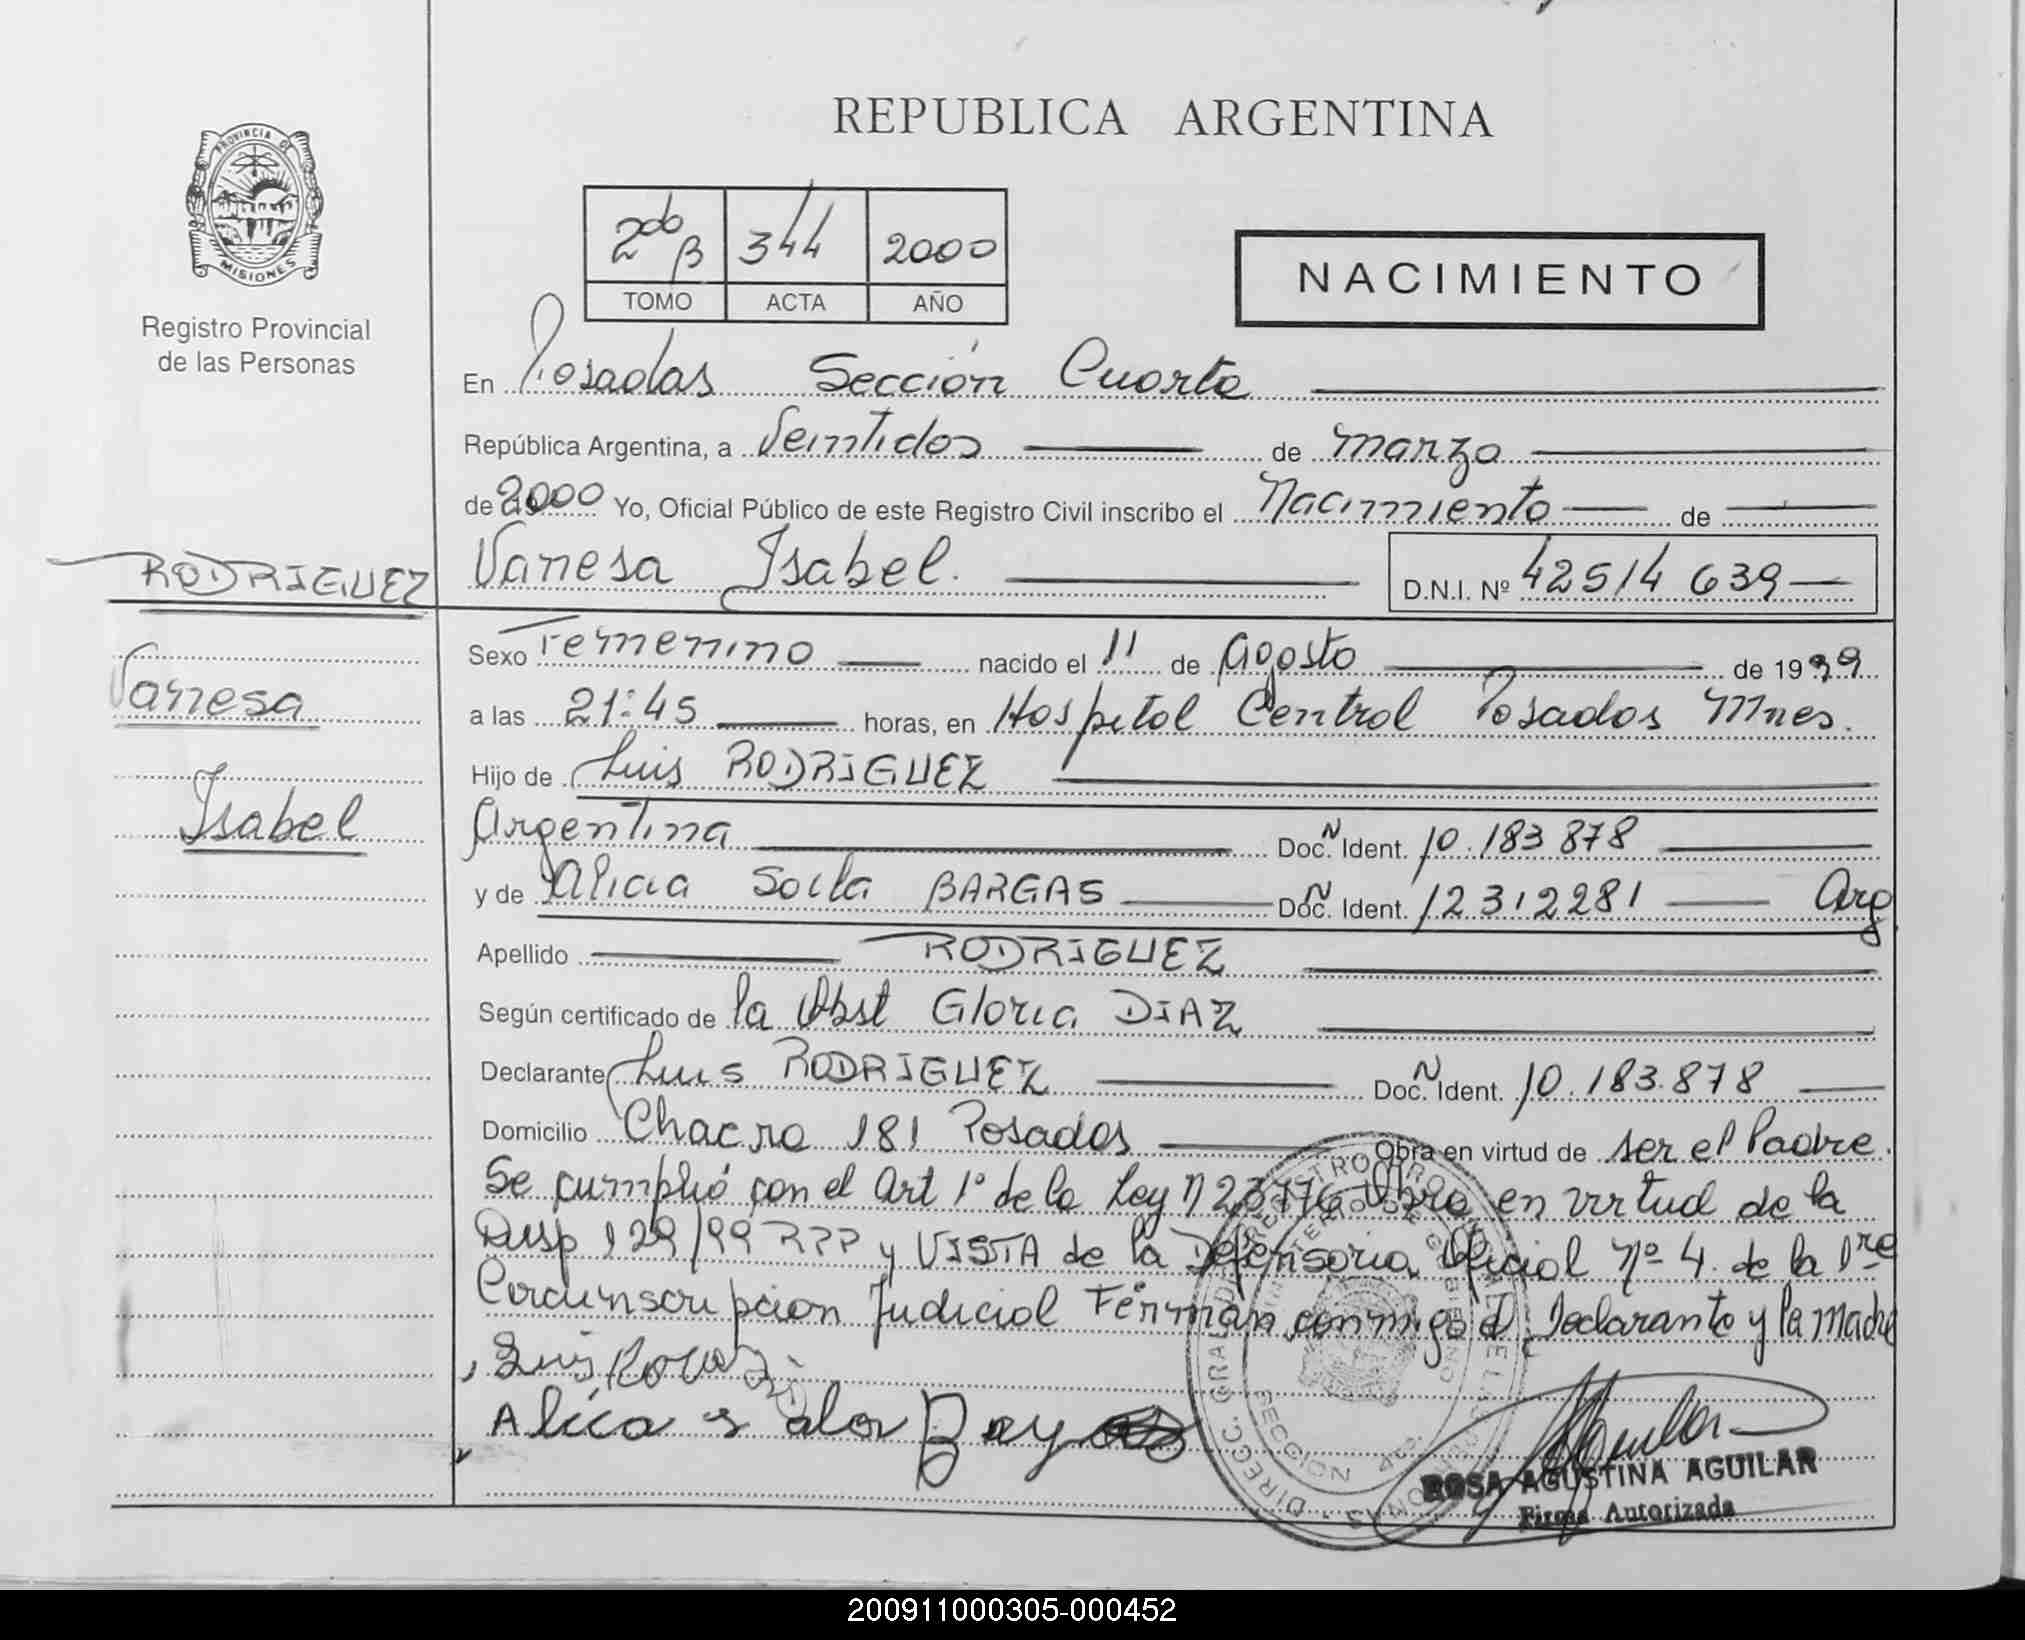 REPUBLICA ARGENTINA
PROVINCIA DE
MISIONES
Registro Provincial
de las Personas
2do B 344 2000
TOMO ACTA AÑO
NACIMIENTO
En Posadas Sección Cuarta
República Argentina, a Veintidos de marzo
de 2000 Yo, Oficial Público de este Registro Civil inscribo el Nacimiento de
RODRIGUEZ
Vanesa Isabel. D.N.I. Nº 42514 639
Vanesa
Isabel
Sexo Femenino nacido el 11 de Agosto de 1999
a las 21:45 horas, en Hospital Central Posadas Mnes.
Hijo de Luis RODRIGUEZ
Argentina Doc. N Ident. 10.183 878
y de Alicia Soila BARGAS Doc. N Ident. 12312281 Arg
Apellido RODRIGUEZ
Según certificado de la Obst Gloria DIAZ
Declarante Luis RODRIGUEZ Doc. N Ident. 10.183.878
Domicilio Chacra 181 Posadas Obra en virtud de ser el Padre.
Se cumplió con el Art 1º de la Ley N 23776 Obra en virtud de la
Disp 129/99 RPP y VISTA de la Defensoria Oficial Nº 4 de la 1re
Circunscripcion Judicial Firman conmigo el Declarante y la Madre
Luis
Alica
DIRECC. GRAL. DE REGISTRO
SECCION 4ta.
ROSA AGUSTINA AGUILAR
Firma Autorizada
200911000305-000452